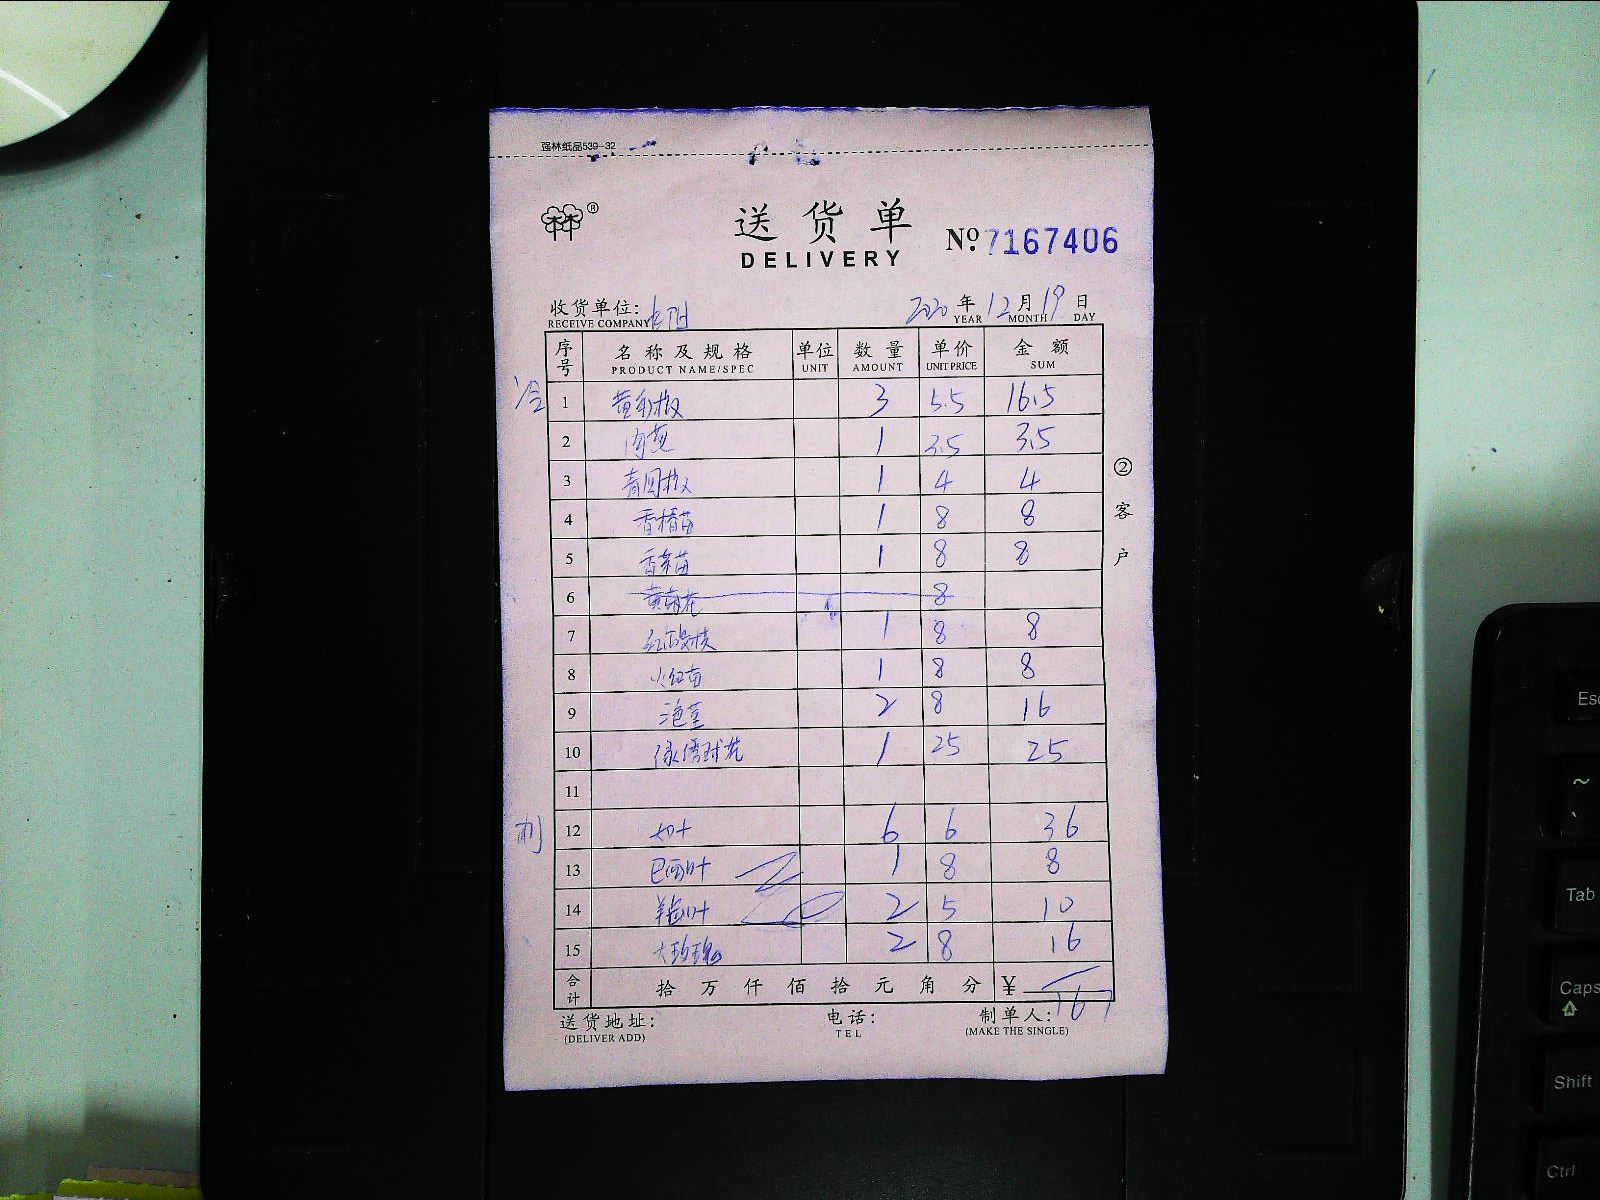 强林纸品539-32
®
送货单 No 7167406
DELIVERY
收货单位: 2020年12月19日
RECEIVE COMPANY YEAR MONTH DAY
序号 名称及规格 单位 数量 单价 金额
PRODUCT NAME/SPEC UNIT AMOUNT UNIT PRICE SUM
冷 1 黄彩椒 3 5.5 16.5
2 1 3.5 3.5
3 青圆椒 1 4 4
4 香椿苗 1 8 8
5 香菜苗 1 8 8
6 黄菊花 8
7 1 8 8
8 火红苗 1 8 8
9 2 8 16
10 绿绣球花 1 25 25
11
12 6 6 36
13 巴西叶 1 8 8
14 羊齿叶 2 5 10
15 大玫瑰 2 8 16
合计 拾万仟佰拾元角分 ¥ 167
送货地址: 电话: 制单人:
(DELIVER ADD) TEL (MAKE THE SINGLE)
②客户
Esc
~
Tab
Caps
Shift
Ctrl